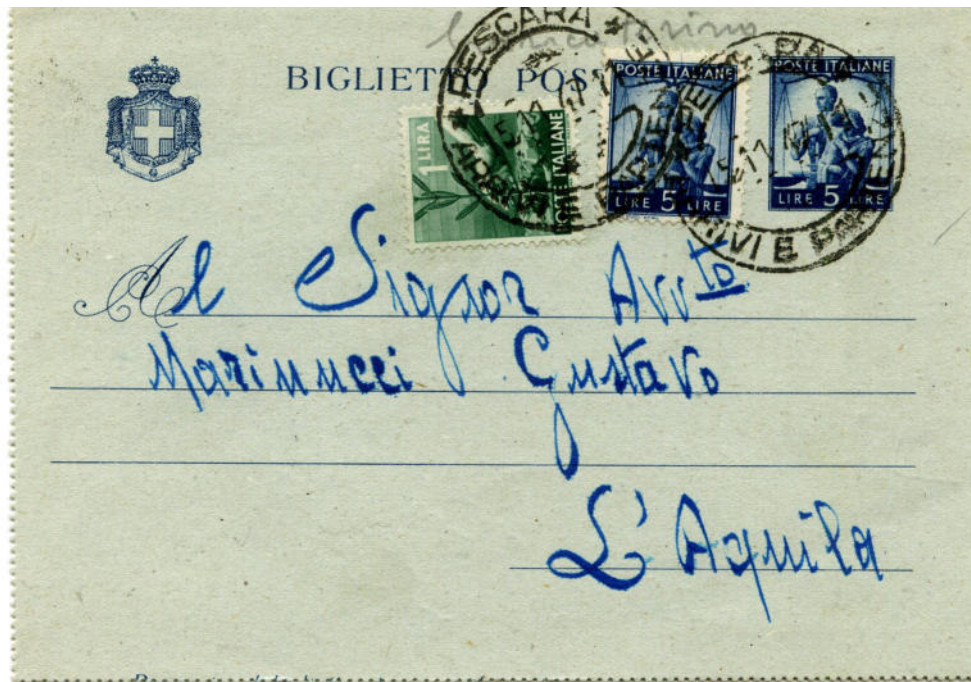 BIGLIETTO POS
PESCARA
ARRIVI E PARTENZE
1 LIRA
POSTE ITALIANE
POSTE ITALIANE
LIRE 5 LIRE
POSTE ITALIANE
LIRE 5 LIRE
ARRIVI E PARTENZE
Al Signor Avv to
Marinucci Gustavo
L'Aquila